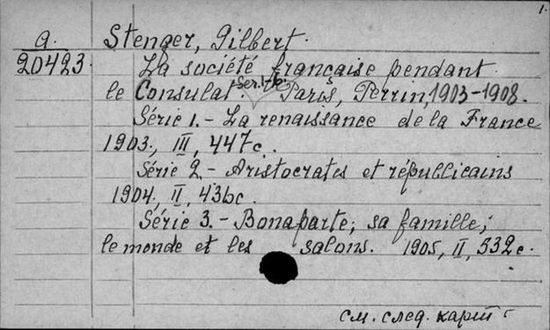 1.
a. Stenger, Gilbert.
20423. La société française pendant
le Consulat. Ser. 1-6. Paris, Perrin, 1903-1908.
Série 1. - La renaissance de la France
1903, III, 447 c.
Série 2 - Aristocrates et républicains
1904, II, 436 c.
Série 3. - Bonaparte; sa famille;
le monde et les salons. 1905, II, 532 c.
см. след. карт